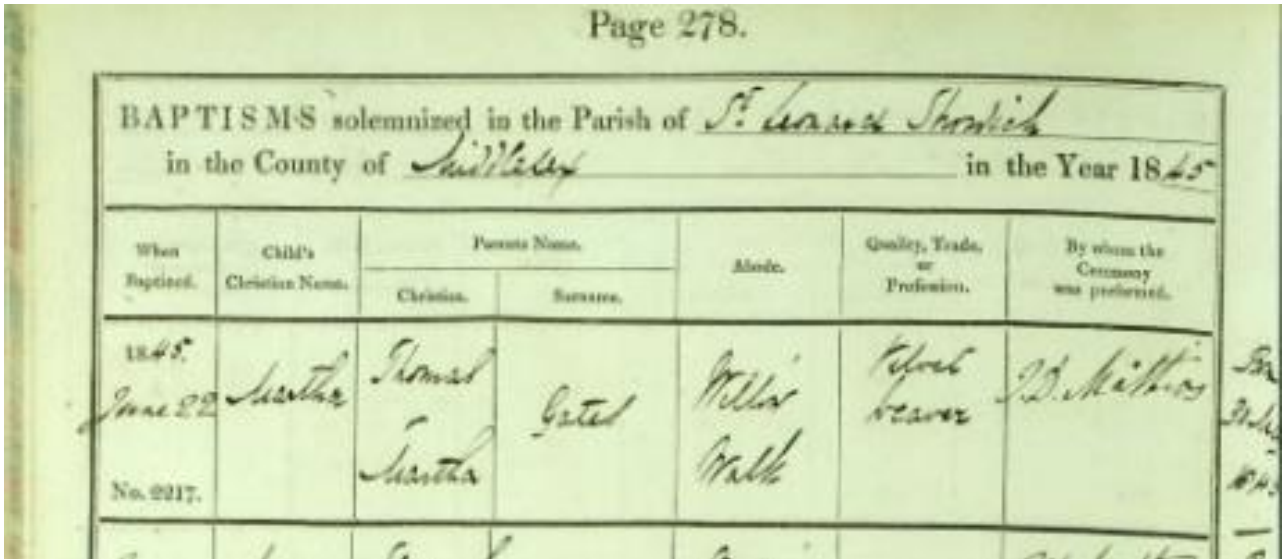 Page 278.
BAPTISMS solemnized in the Parish of St. Leonard Shoreditch
in the County of Middlesex in the Year 1845
When Baptized.
Child's Christian Name.
Parents Name.
Christian.
Surname.
Abode.
Quality, Trade, or Profession.
By whom the Ceremony was performed.
1845.
June 22
No. 2217.
Martha
Thomas
Martha
Gates
Willow
Walk
Velvet
weaver